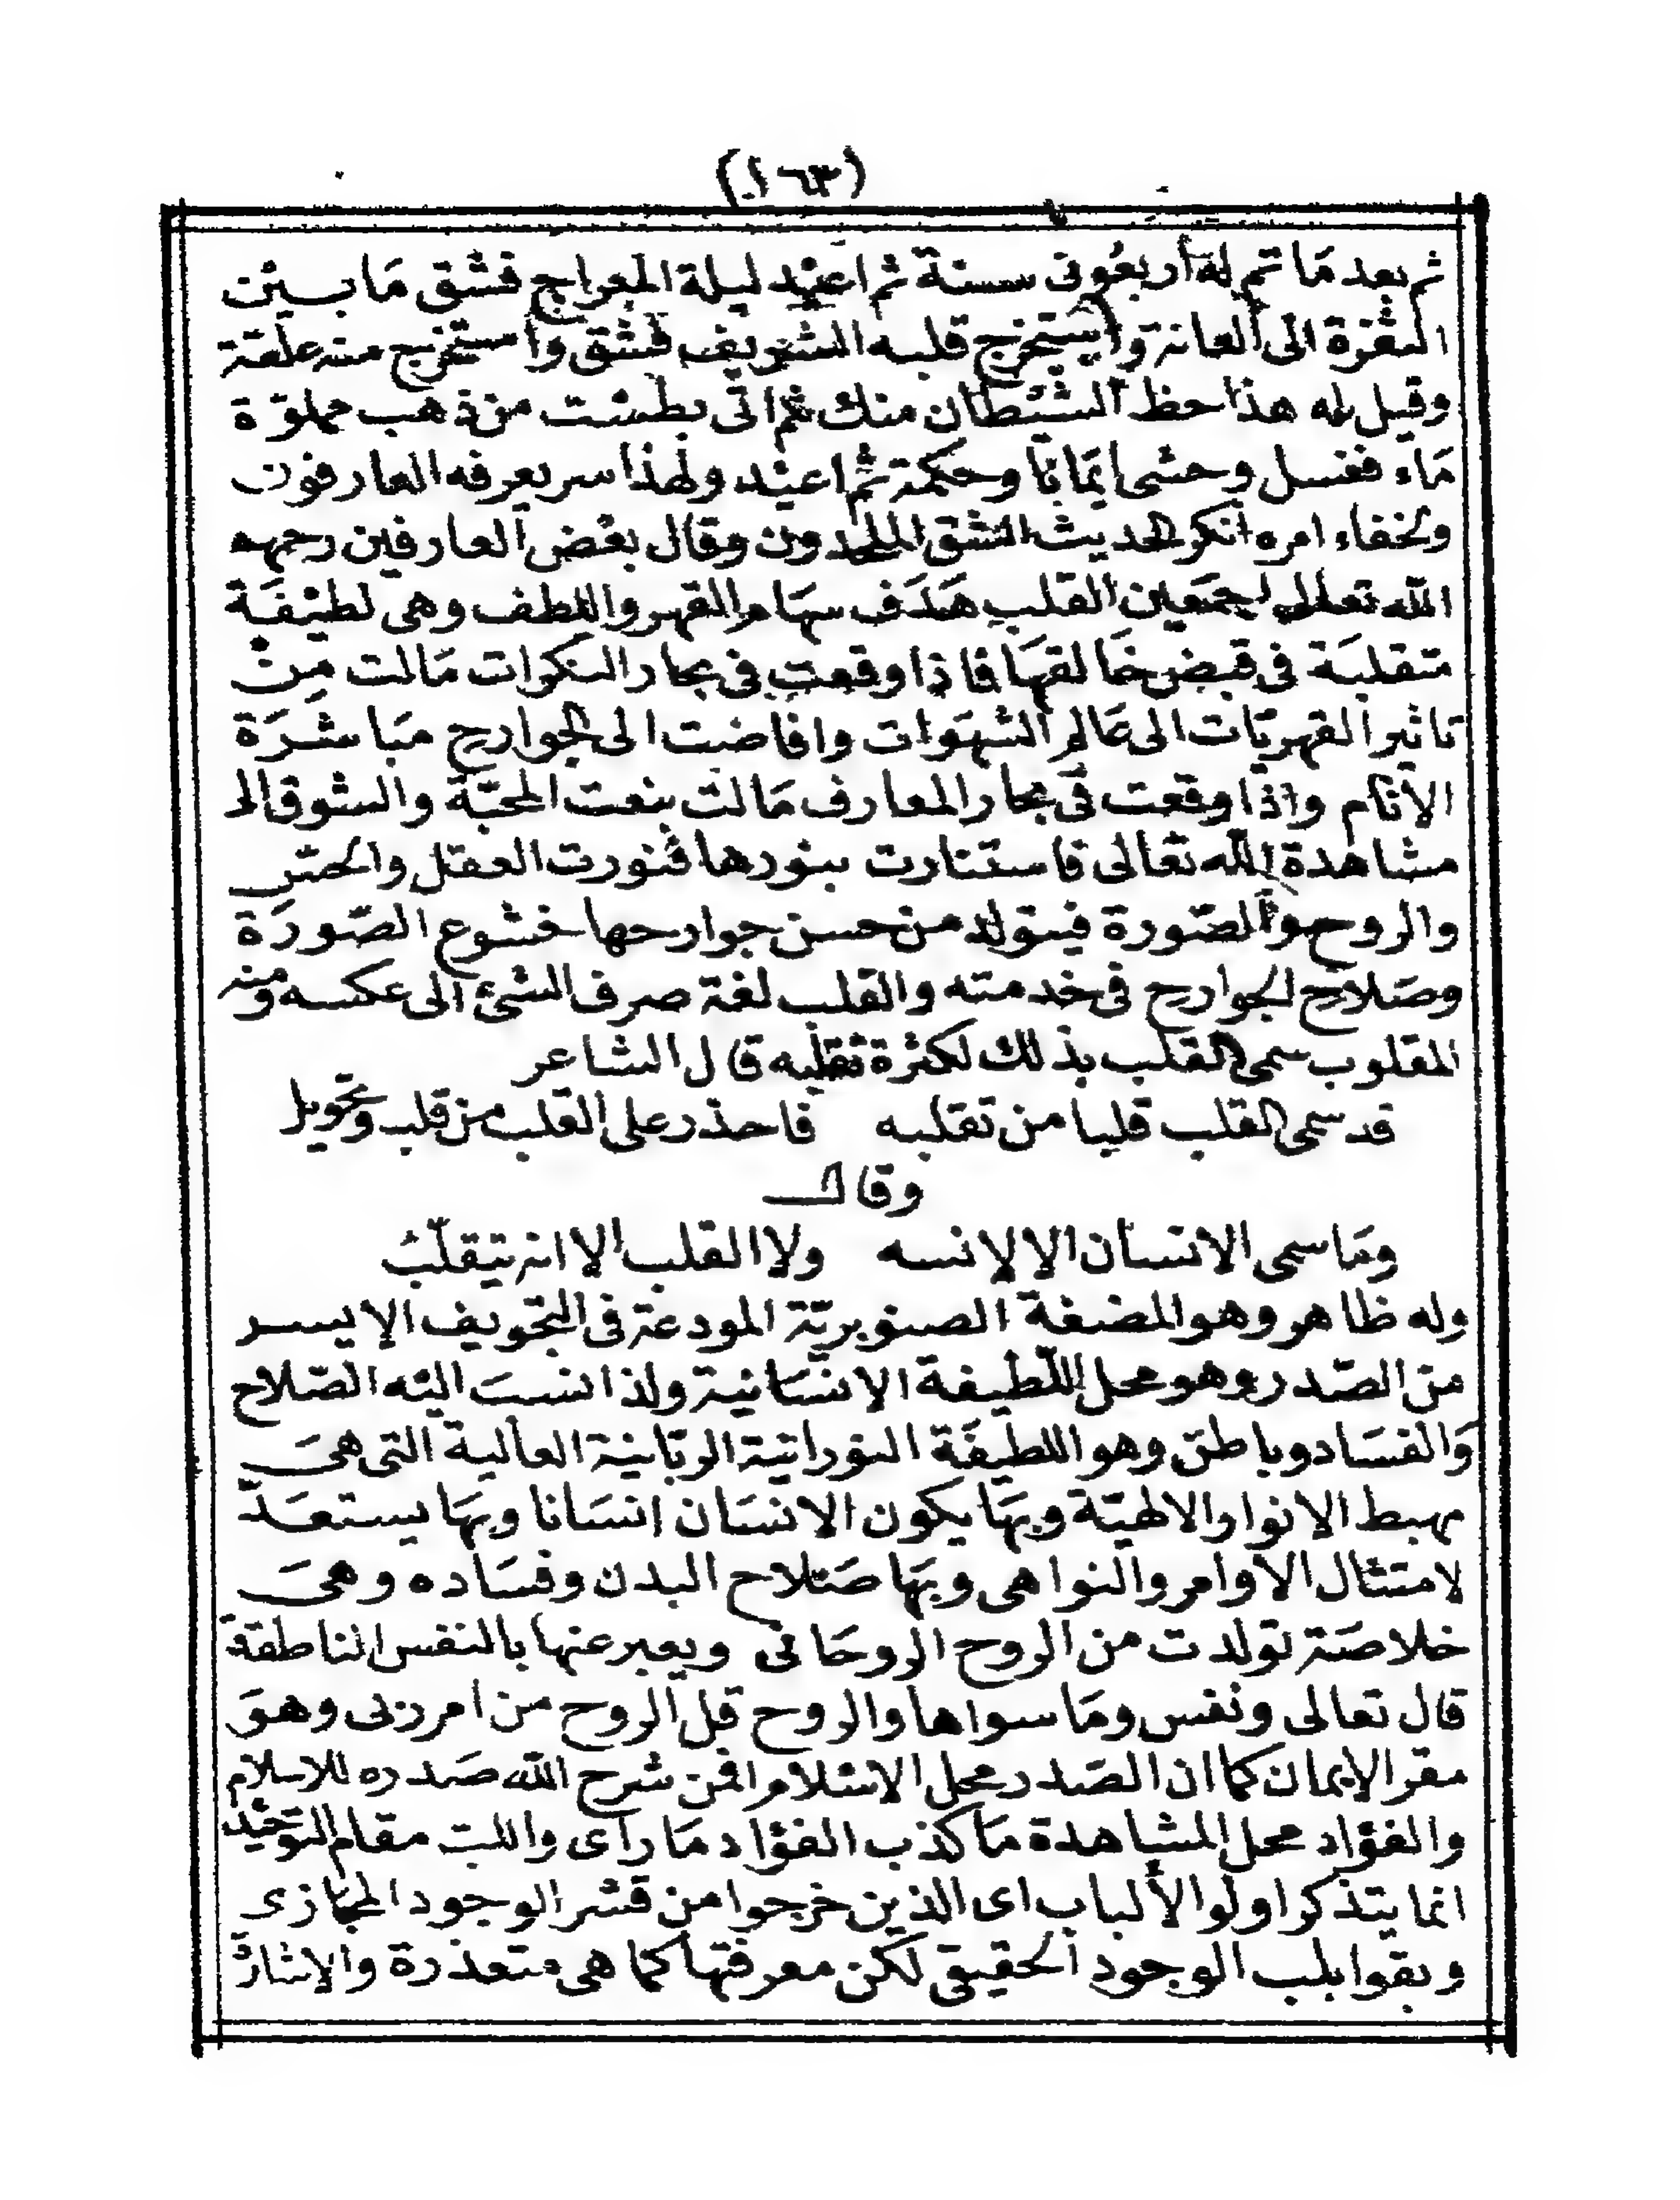 (١٦٣)
ثم بعد ما تم له أربعون سنة ثم اعيد ليلة المعراج فشق ما بين
النغرة الى العانة واستخرج قلبه الشريف فشق واستخرج منه علقة
وقيل له هذا حظ الشيطان منك ثم اتى بطست من ذهب مملوءة
ماء فغسل وحشى ايمانا وحكمة ثم اعيد ولهذا سر يعرفه العارفون
ولخفاء امره انكر الحديث الشق الملحدون وقال بعض العارفين رحمهم
الله تعالى اجمعين القلب هدف سهام القهر واللطف وهى لطيفة
متقلبة فى قبض خالقها فاذا وقعت فى بحار النكرات مالت من
تاثير القهريات الى عالم الشهوات وافاضت الى الجوارح مباشرة
الأثام واذا وقعت فى بحار المعارف مالت بنعت المحبّة والشوق الى
مشاهدة الله تعالى فاستنارت بنورها فنورت العقل والحسّ
والروح والصّورة فيتولد من حسن جوارحها خشوع الصّورة
وصلاح الجوارح فى خدمته والقلب لغة صرف الشئ الى عكسه ومنه
المقلوب سمى القلب بذلك لكثرة تقلبه قال الشاعر
قد سمى القلب قلبا من تقلبه فاحذر على القلب من قلب وتحويل
وقال
وما سمى الانسان الا لانسه ولا القلب الا انه يتقلّب
وله ظاهر وهو المضغة الصنوبريّة المودعة فى التجويف الايسر
من الصّدر وهو محل اللّطيفة الانسانية ولذا نسب اليه الصّلاح
والفساد وباطن وهو اللطيفة النورانية الربّانية العالية التى هى
مهبط الانوار الالهيّة وبها يكون الانسان انسانا وبها يستعدّ
لامتثال الاوامر والنواهى وبها صلاح البدن وفساده وهى
خلاصة تولدت من الروح الروحانى ويعبر عنها بالنفس الناطقة
قال تعالى ونفس وما سواها والروح قل الروح من امر ربى وهو
مقر الايمان كما ان الصدر محل الاسلام افمن شرح الله صدره للاسلام
والفؤاد محل المشاهدة ما كذب الفؤاد ما راى واللب مقام التوحيد
انما يتذكر اولو الألباب اى الذين خرجوا من قشر الوجود المجازى
وبقوا بلب الوجود الحقيقى لكن معرفتها كما هى متعذرة والاشارة